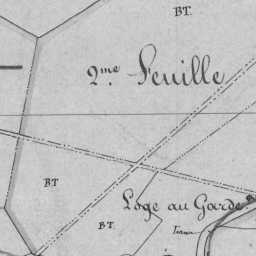 BT.
2me Feuille
BT
Loge au Garde.
BT.